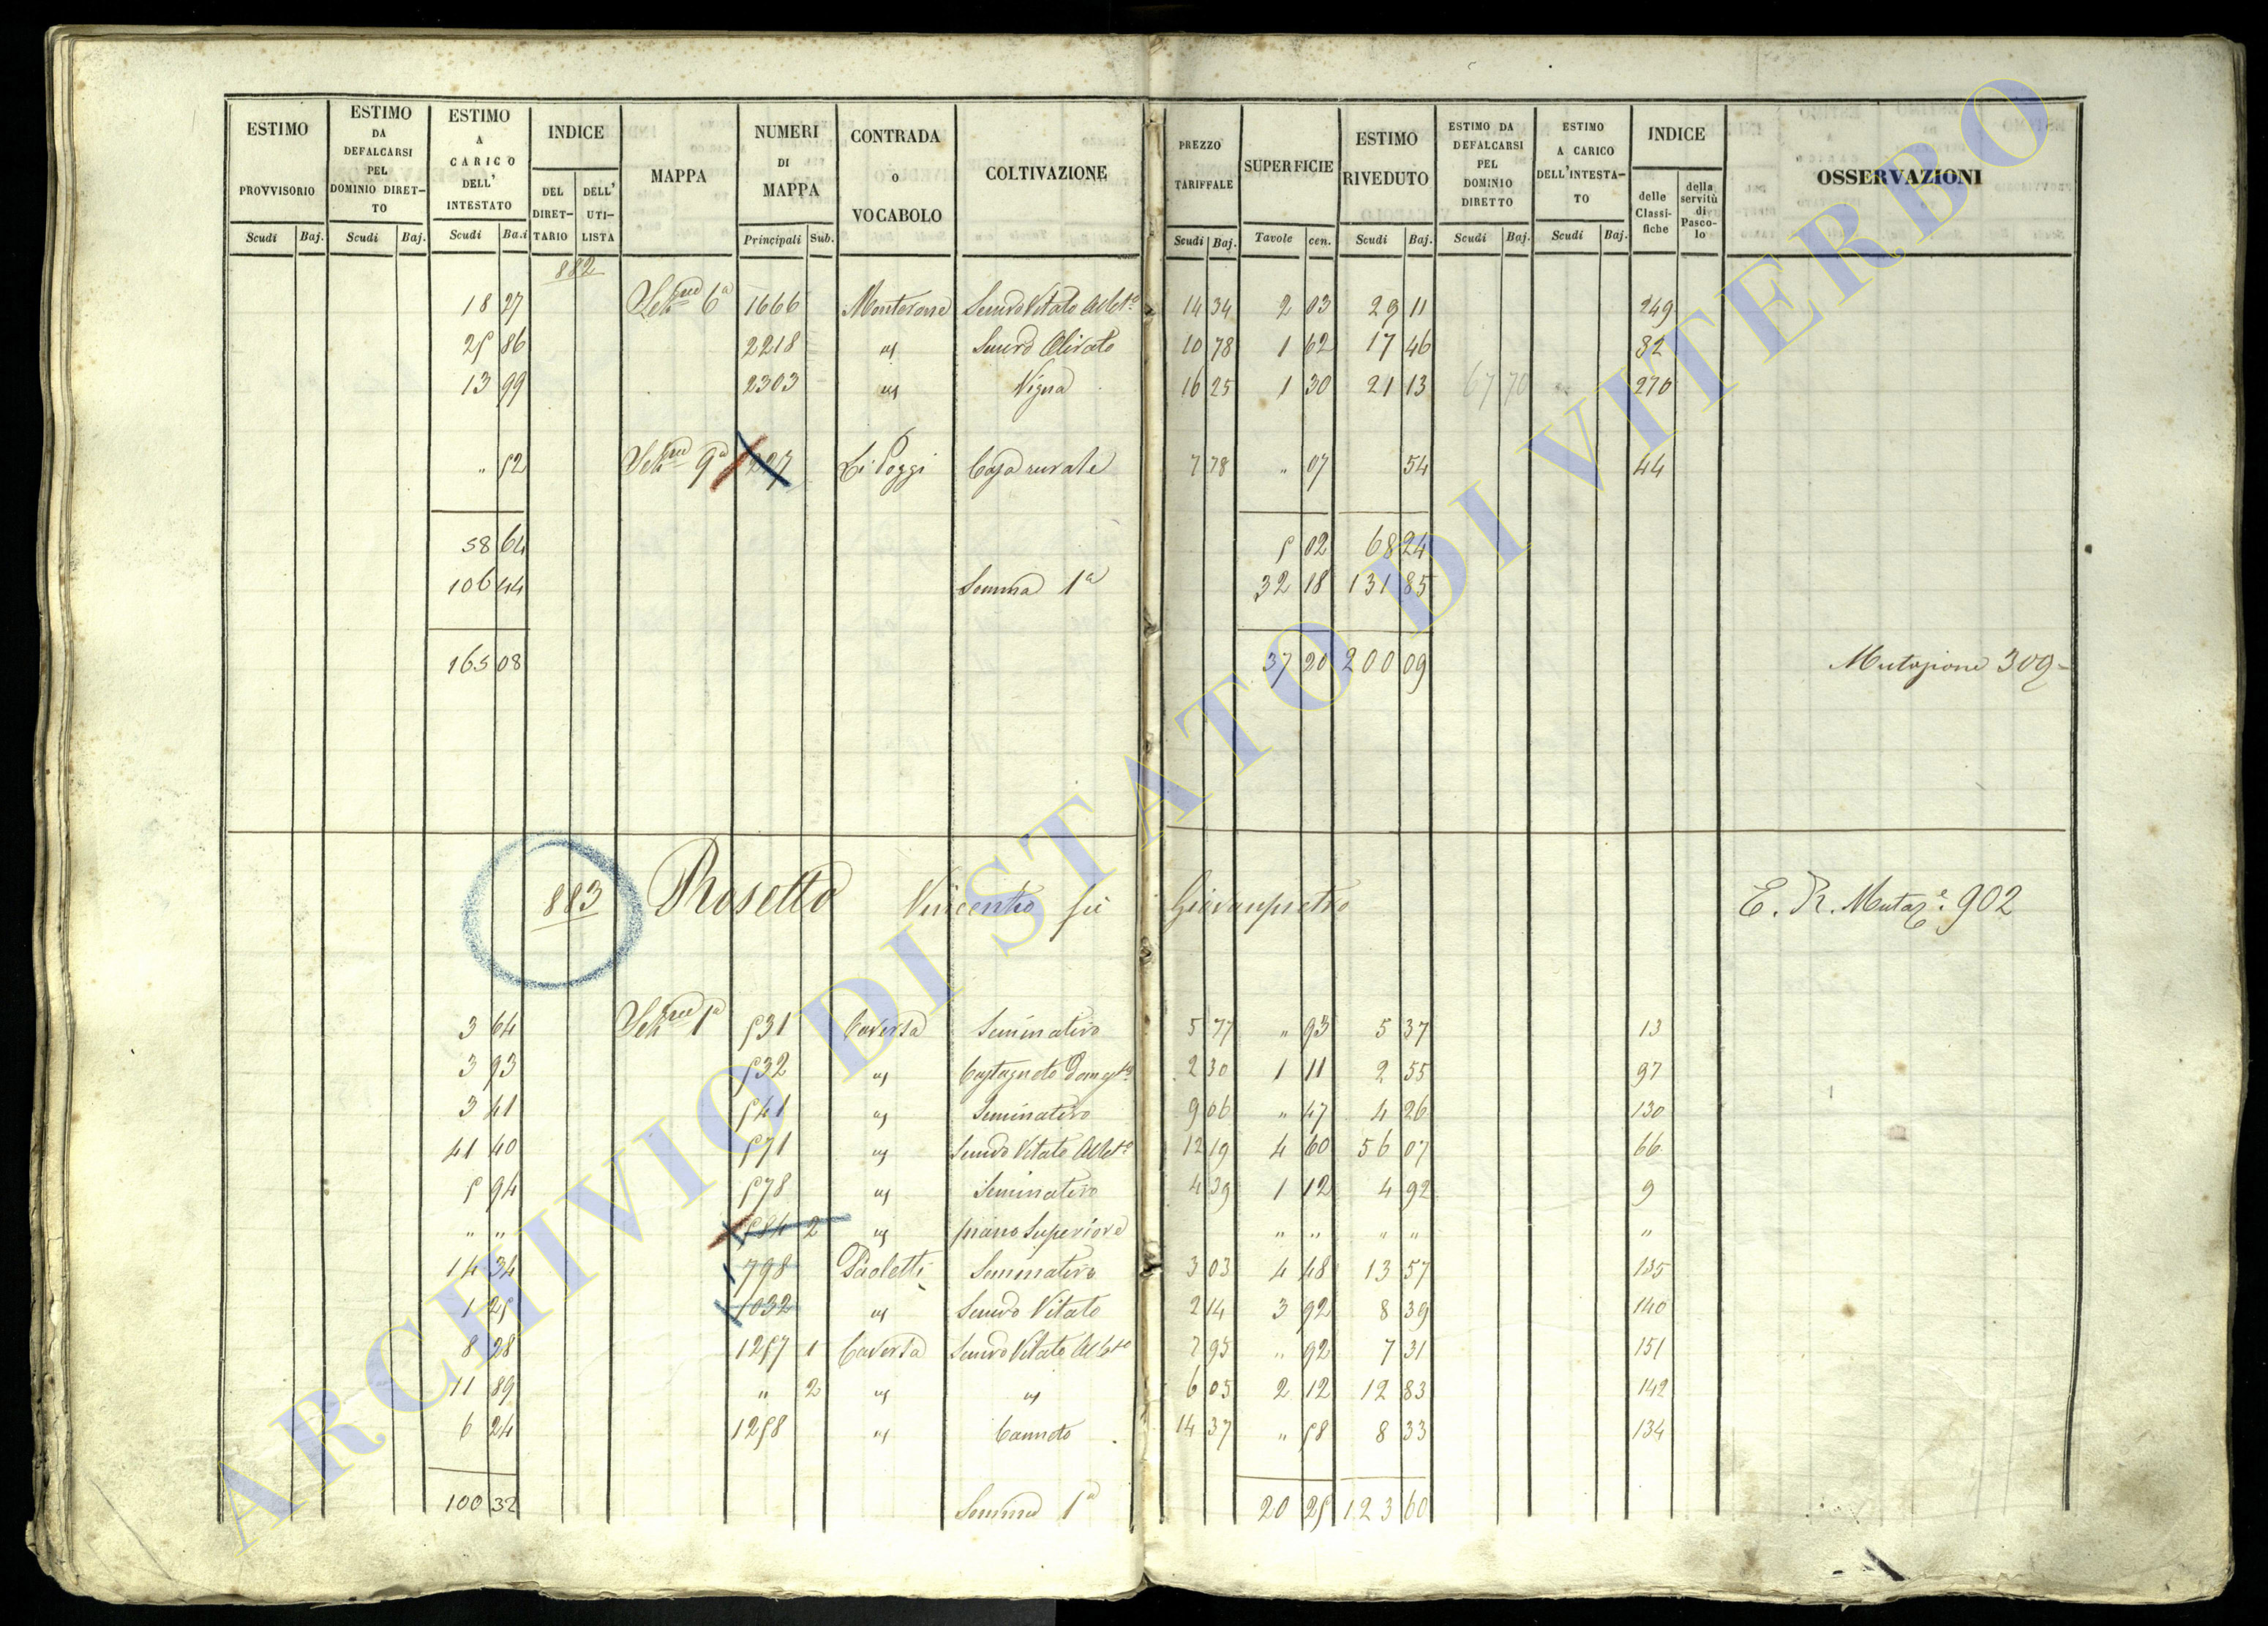 ESTIMO PROVVISORIO | ESTIMO DA DEFALCARSI PEL DOMINIO DIRETTO | ESTIMO A CARICO DELL' INTESTATO | INDICE | MAPPA | NUMERI DI MAPPA | CONTRADA o VOCABOLO | COLTIVAZIONE | PREZZO TARIFFALE | SUPERFICIE | ESTIMO RIVEDUTO | ESTIMO DA DEFALCARSI PEL DOMINIO DIRETTO | ESTIMO A CARICO DELL'INTESTATO | INDICE | OSSERVAZIONI
DEL DIRETTARIO | DELL' UTILISTA | delle Classifiche | della servitù di Pascolo
Scudi | Baj. | Scudi | Baj. | Scudi | Ba.i | Principali | Sub. | Scudi | Baj. | Tavole | cen. | Scudi | Baj. | Scudi | Baj. | Scudi | Baj.
882
18 27 | 6a | 1666 | Monterone | Semvo Vitato Albto | 14 34 | 2 03 | 29 11 | 249
25 86 | 2218 | " | Semvo Olivato | 10 78 | 1 62 | 17 46 | 82
13 99 | 2303 | " | Vigna | 16 25 | 1 30 | 21 13 | 67 70 | 270
" 52 | 9a | 227 | Li Poggi | Casa rurale | 7 78 | " 07 | 54 | 44
58 64 | 5 02 | 68 24
106 44 | Somma 1a | 32 18 | 131 85
165 08 | 37 20 | 200 09 | Mutazione 309
883 | Rosetto Vincenzo fù Giovanpietro | E. R. Mutaze 902
3 64 | 1a | 531 | Caversa | Seminativo | 5 77 | " 93 | 5 37 | 13
3 93 | 532 | " | Castagneto Domesto | 2 30 | 1 11 | 2 55 | 97
3 41 | 541 | " | Seminativo | 9 06 | " 47 | 4 26 | 130
41 40 | 571 | " | Semvo Vitato Albto | 12 19 | 4 60 | 56 07 | 66
5 94 | 578 | " | Seminativo | 4 39 | 1 12 | 4 92 | 9
" " | 584 2 | " | piano Superiore | " " | " " | "
14 34 | 798 | Paoletti | Seminativo | 3 03 | 4 48 | 13 57 | 135
1 25 | 1032 | " | Semvo Vitato | 2 14 | 3 92 | 8 39 | 140
8 28 | 1257 1 | Caversa | Semvo Vitato Albto | 7 95 | " 92 | 7 31 | 151
11 89 | " 2 | " | " | 6 05 | 2 12 | 12 83 | 142
6 24 | 1258 | " | Canneto | 14 37 | " 58 | 8 33 | 134
100 32 | Somma 1a | 20 25 | 123 60
ARCHIVIO DI STATO DI VITERBO